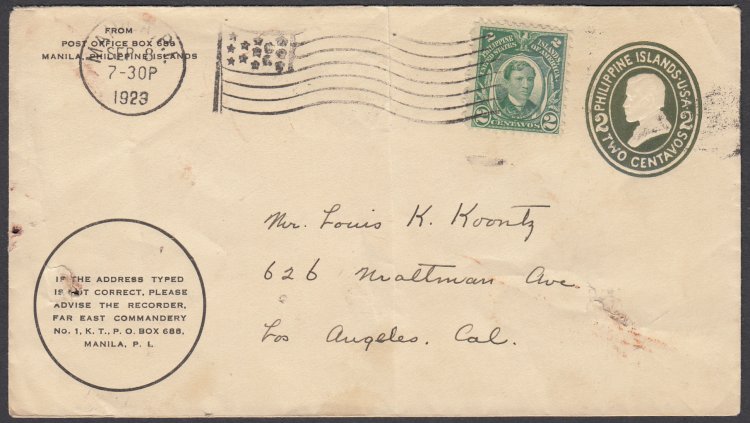 FROM
POST OFFICE BOX 688
MANILA, PHILIPPINE ISLANDS
SEP 8
7-30P
1923
2 2
PHILIPPINE ISLANDS
UNITED STATES OF AMERICA
2 CENTAVOS 2
PHILIPPINE ISLANDS·U·S·A·
2 2
TWO CENTAVOS
Mr. Louis K. Koontz
626 Maltman Ave
Los Angeles. Cal.
IF THE ADDRESS TYPED
IS NOT CORRECT, PLEASE
ADVISE THE RECORDER,
FAR EAST COMMANDERY
NO. 1, K. T., P. O. BOX 688,
MANILA, P. I.